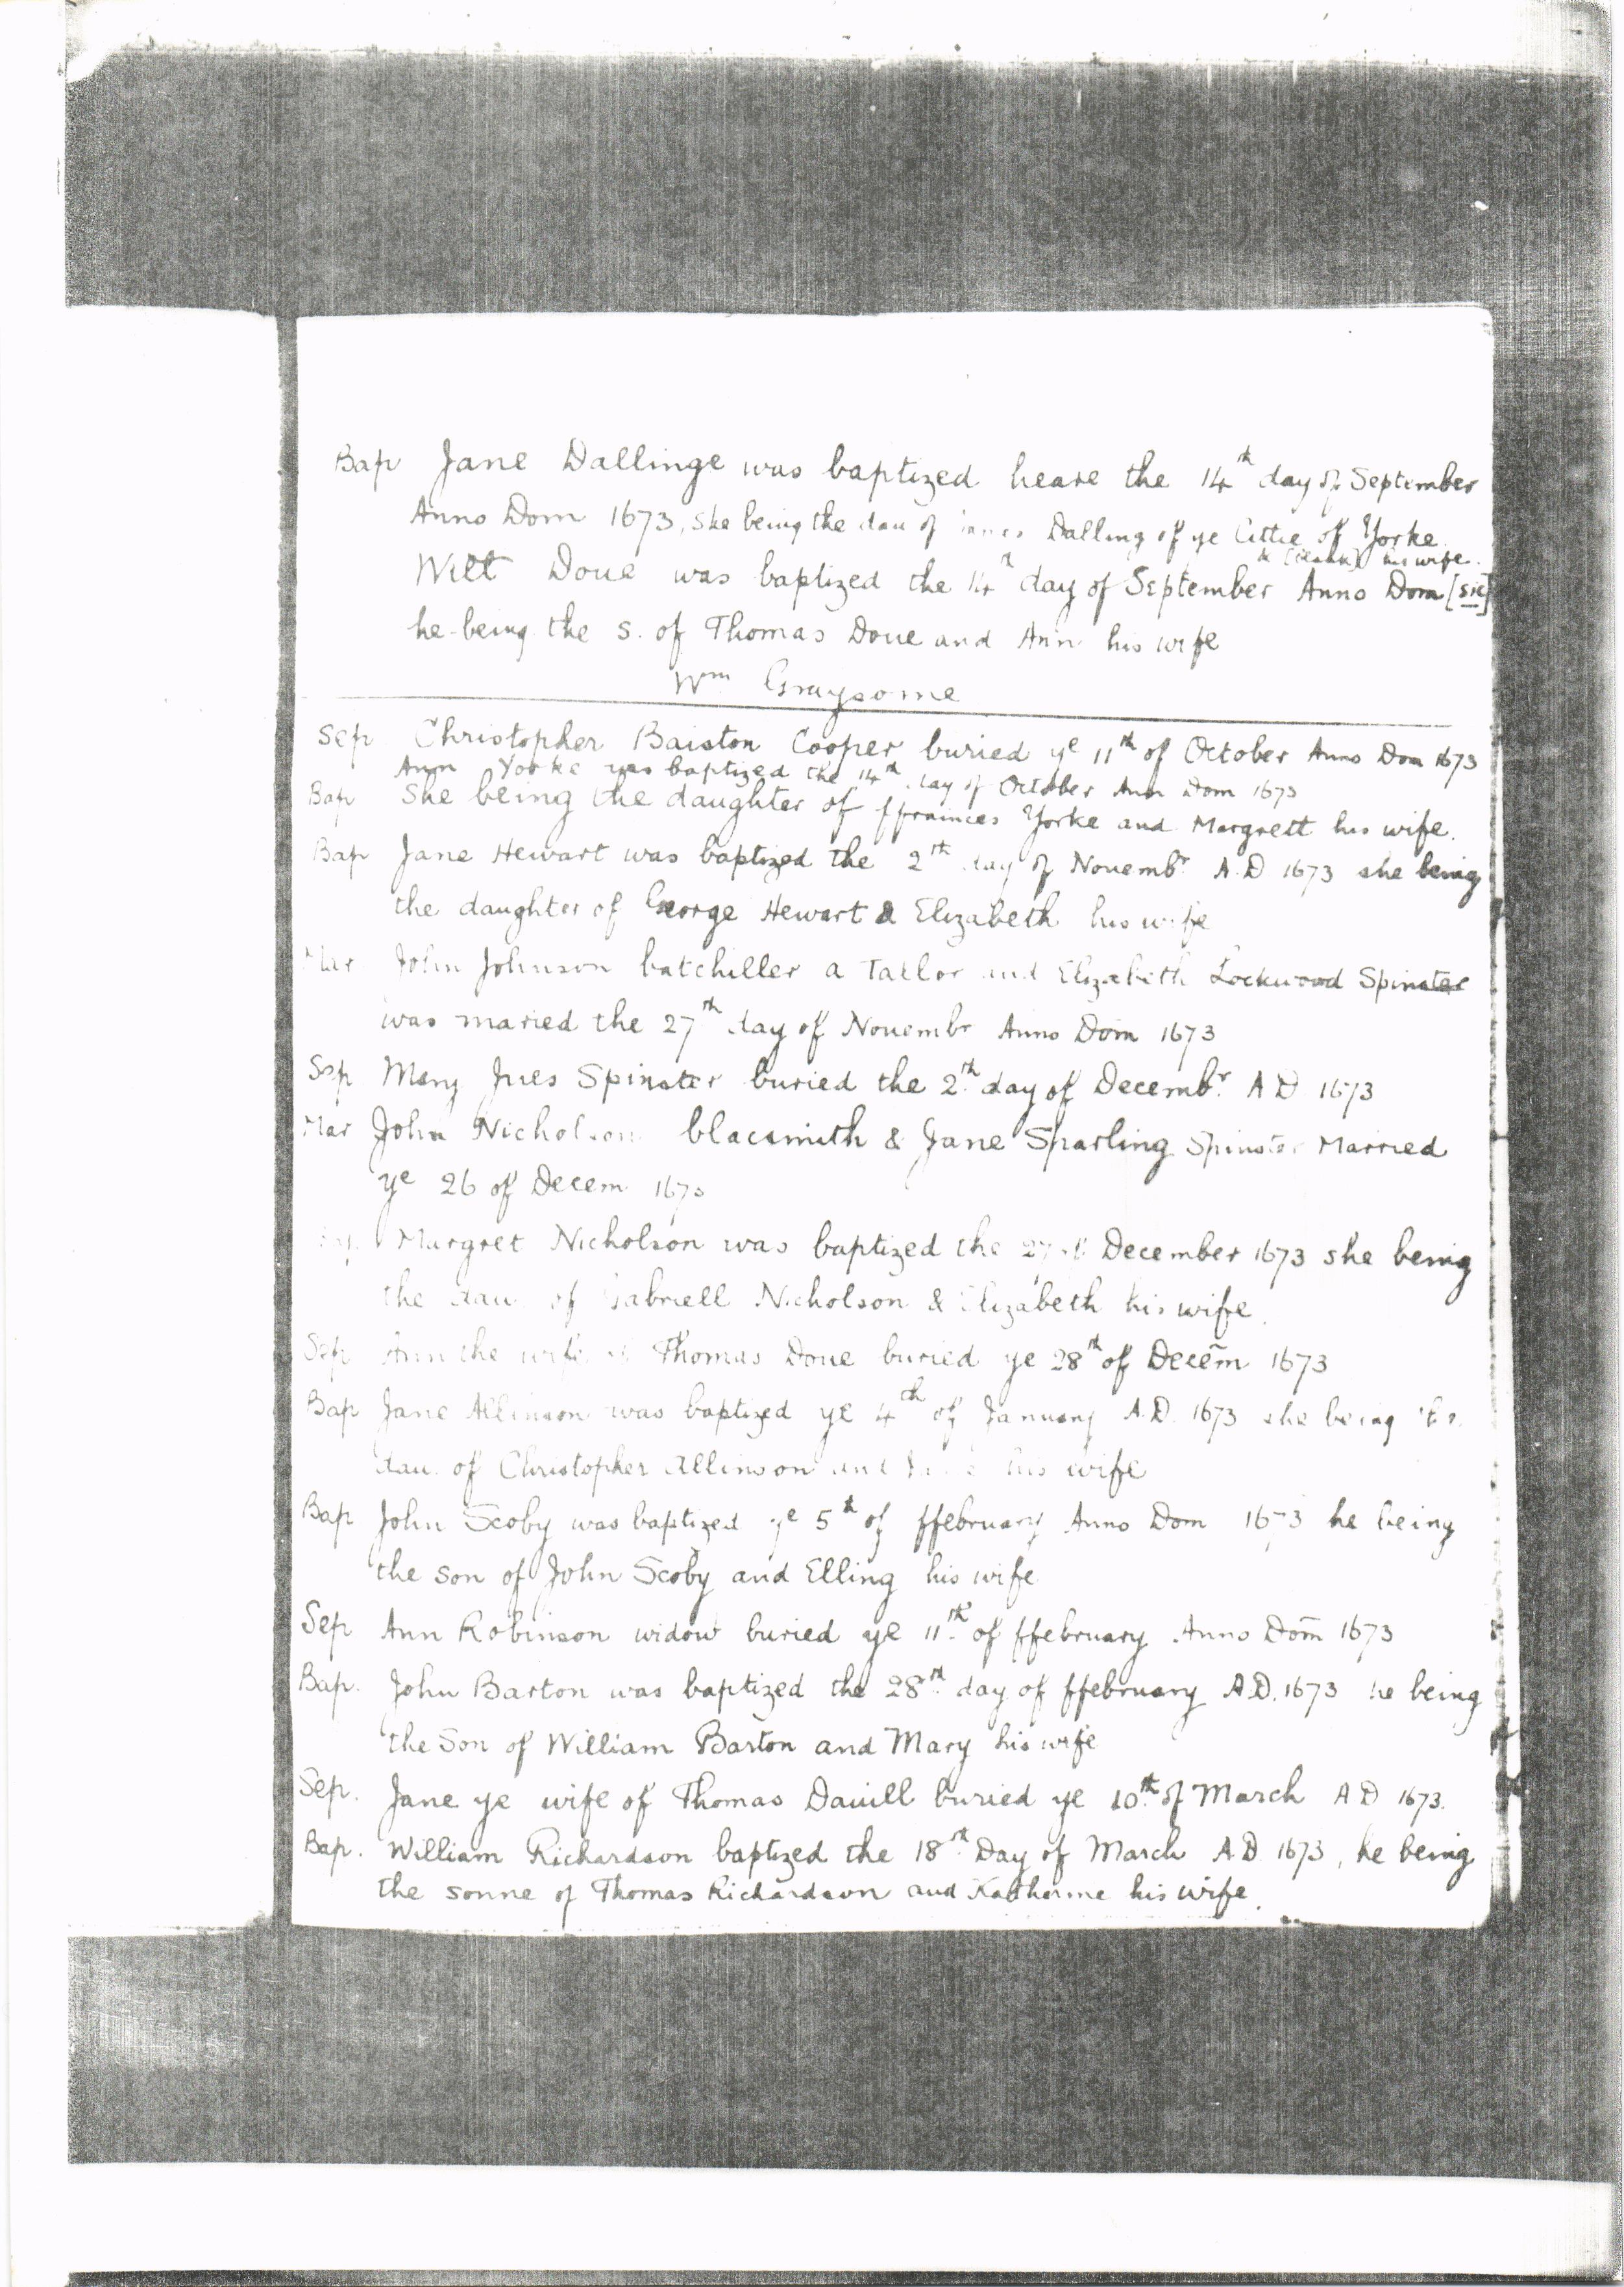 Bap Jane Dallinge was baptized heare the 14th day of September
Anno Dom 1673, she being the dau of Dalling of ye Cittie of Yorke
& (blank) his wife.
Willt Doue was baptized the 14th day of September Anno Dom [sic]
he being the s. of Thomas Doue and Ann his wife
Wm Graysome
Sep Christopher Baiston Cooper buried ye 11th of October Anno Dom 1673
Ann Yorke was baptized the 14th day of October Ann Dom 1673
Bap She being the daughter of ffrainces Yorke and Margrett his wife.
Bap Jane Hewart was baptized the 2th day of Nouembr A.D 1673 she being
the daughter of George Hewart & Elizabeth his wife
Mar John Johnson batchiller a Tallor and Elizabeth Lockwood Spinster
was maried the 27th day of Nouembr Anno Dom 1673
Sep Mary Jues Spinster buried the 2th day of Decembr A D 1673
Mar John Nicholson blacsmith & Jane Sparling Spinster Married
ye 26 of Decem 1673
Bap. Margret Nicholson was baptized the 27th December 1673 she being
the dau of Gabriell Nicholson & Elizabeth his wife.
Sep Ann the wife of Thomas Doue buried ye 28th of Decem̄ 1673
Bap Jane Allinson was baptized ye 4th of January A.D. 1673 she being the
dau. of Christopher Allinson and his wife
Bap John Scoby was baptized ye 5th of ffebruary Anno Dom 1673 he being
the son of John Scoby and Elling his wife
Sep Ann Robinson widow buried ye 11th of ffebruary Anno Dom̄ 1673
Bap. John Barton was baptized the 28th day of ffebruary A.D. 1673 he being
the Son of William Barton and Mary his wife
Sep. Jane ye wife of Thomas Dauill buried ye 10th of March A D 1673.
Bap. William Richardson baptized the 18th Day of March A.D. 1673, he being
the sonne of Thomas Richardson and Katherine his wife.